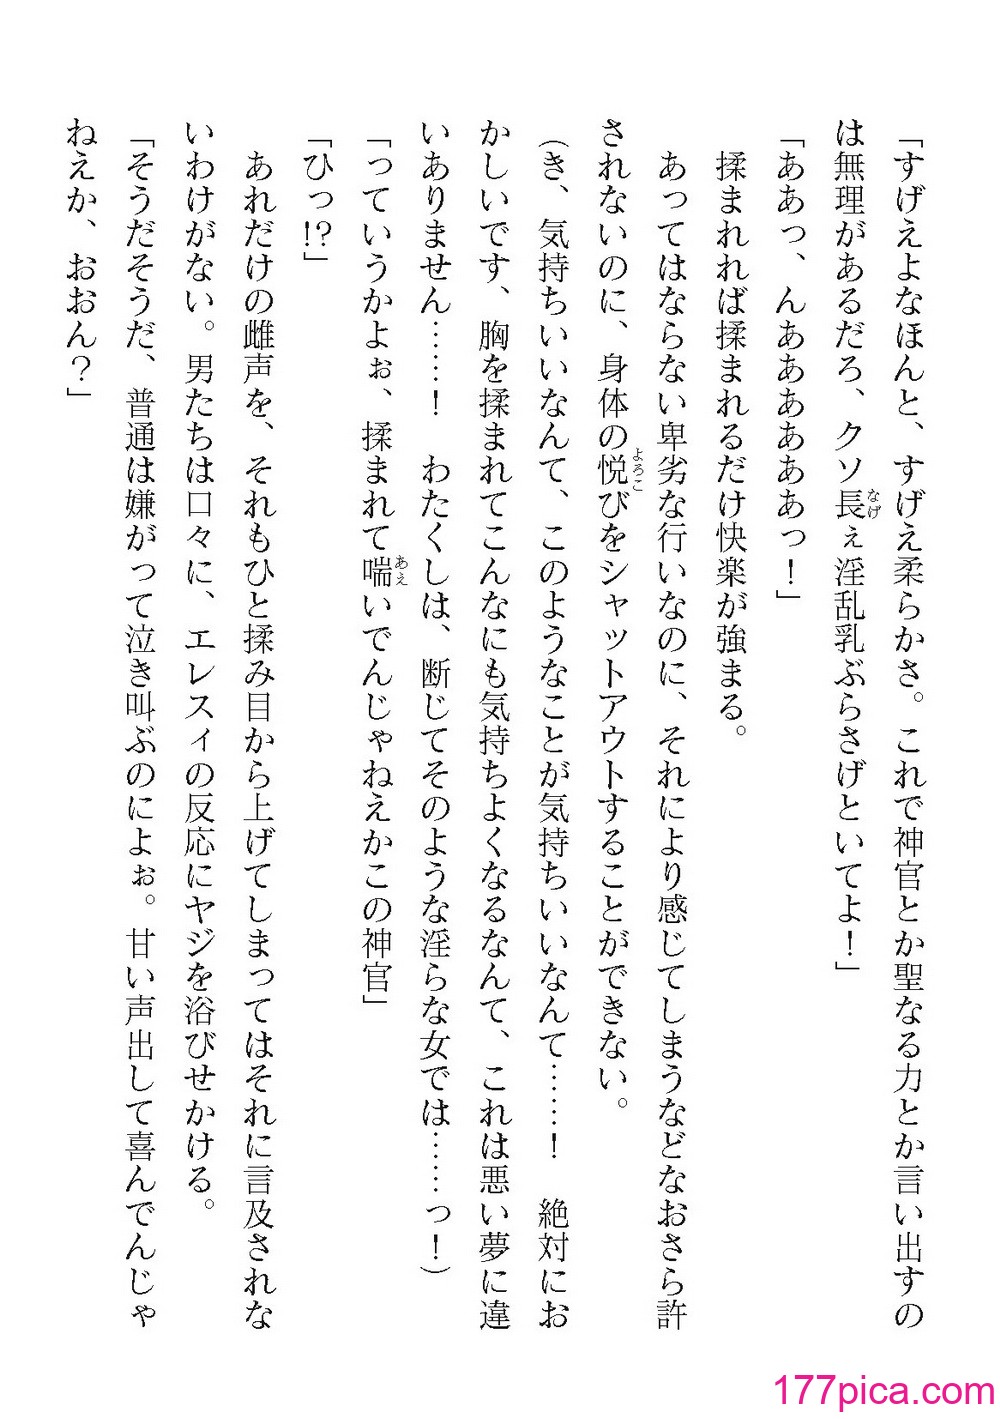 「すげえよなほんと、すげえ柔らかさ。これで神官とか聖なる力とか言い出すの
は無理があるだろ、クソ長ぇ淫乱乳ぶらさげといてよ！」
「ああっ、んああああああっ！」
　揉まれれば揉まれるだけ快楽が強まる。
　あってはならない卑劣な行いなのに、それにより感じてしまうなどなおさら許
されないのに、身体の悦びをシャットアウトすることができない。
（き、気持ちいいなんて、このようなことが気持ちいいなんて……！　絶対にお
かしいです、胸を揉まれてこんなにも気持ちよくなるなんて、これは悪い夢に違
いありません……！　わたくしは、断じてそのような淫らな女では……っ！）
「っていうかよぉ、揉まれて喘いでんじゃねえかこの神官」
「ひっ!?」
　あれだけの雌声を、それもひと揉み目から上げてしまってはそれに言及されな
いわけがない。男たちは口々に、エレスィの反応にヤジを浴びせかける。
「そうだそうだ、普通は嫌がって泣き叫ぶのによぉ。甘い声出して喜んでんじゃ
ねえか、おおん？」
なげ
よろこ
あえ
177pica.com